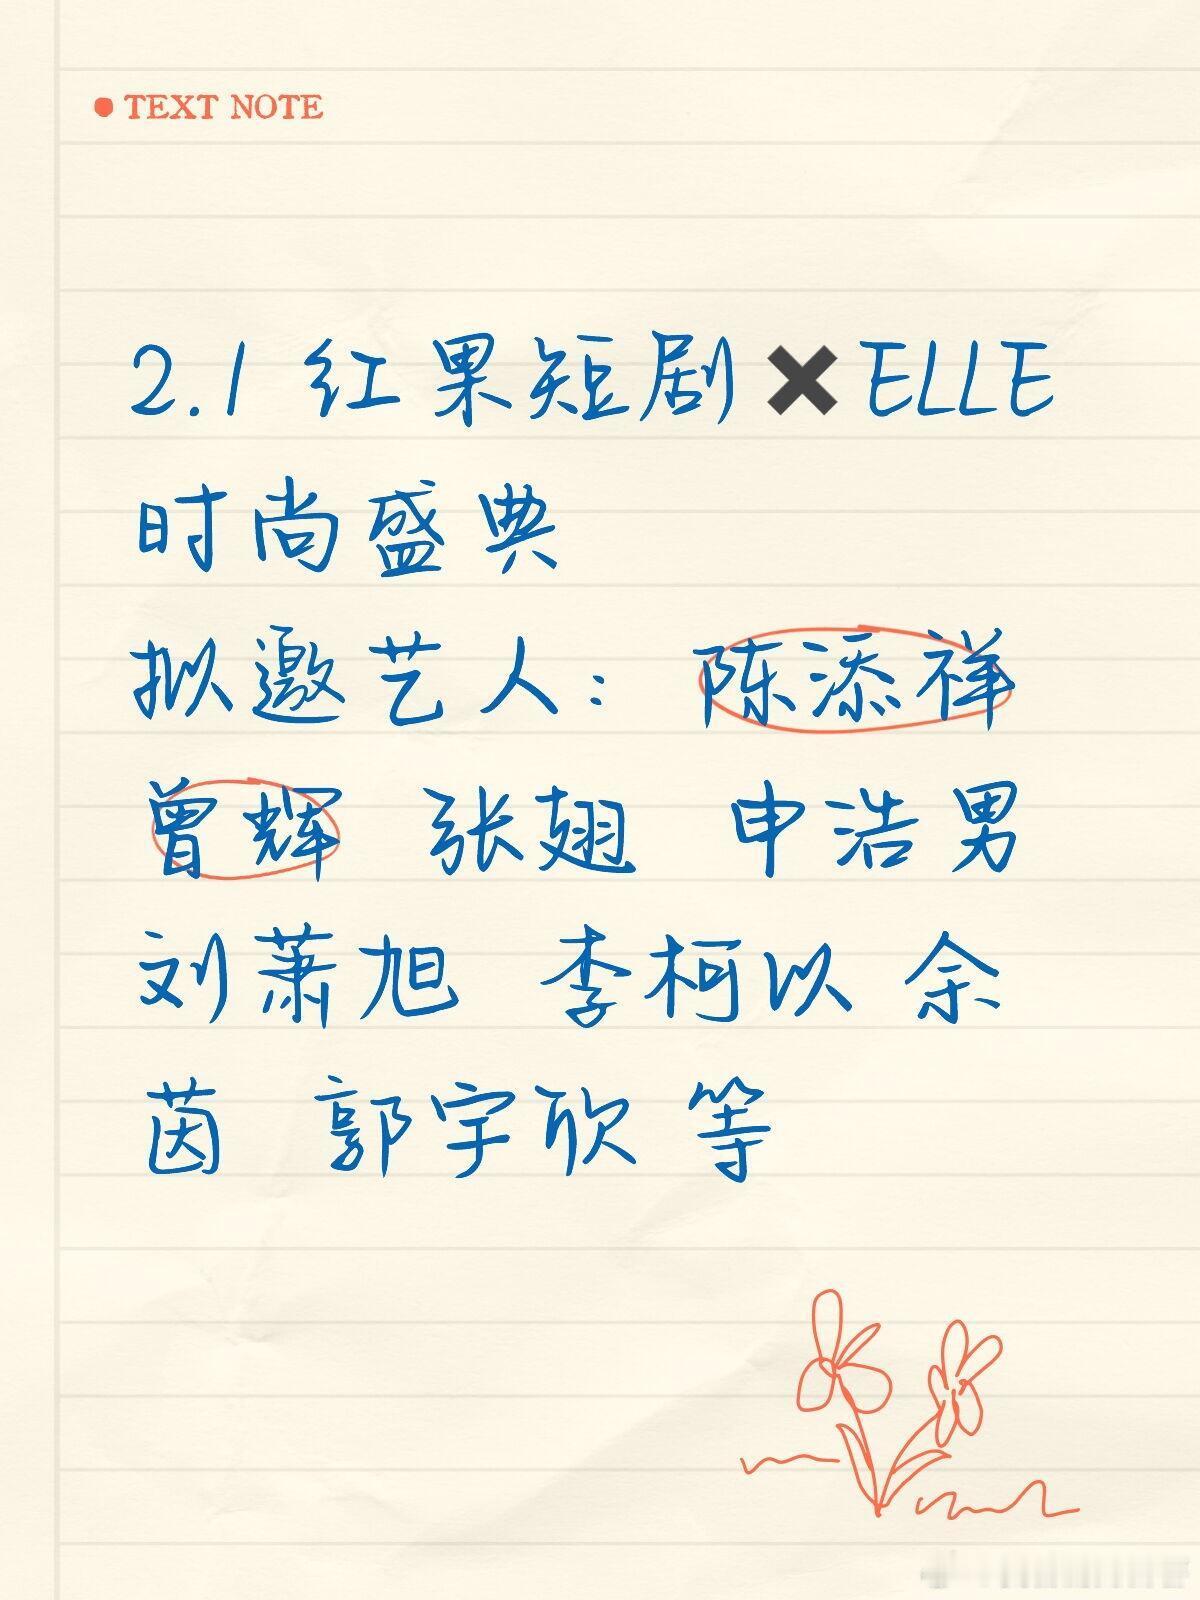 TEXT NOTE
2.1 红果短剧✖ELLE
时尚盛典
拟邀艺人： 陈添祥
曾辉 张翅 申浩男
刘萧旭 李柯以 余
茵 郭宇欣 等